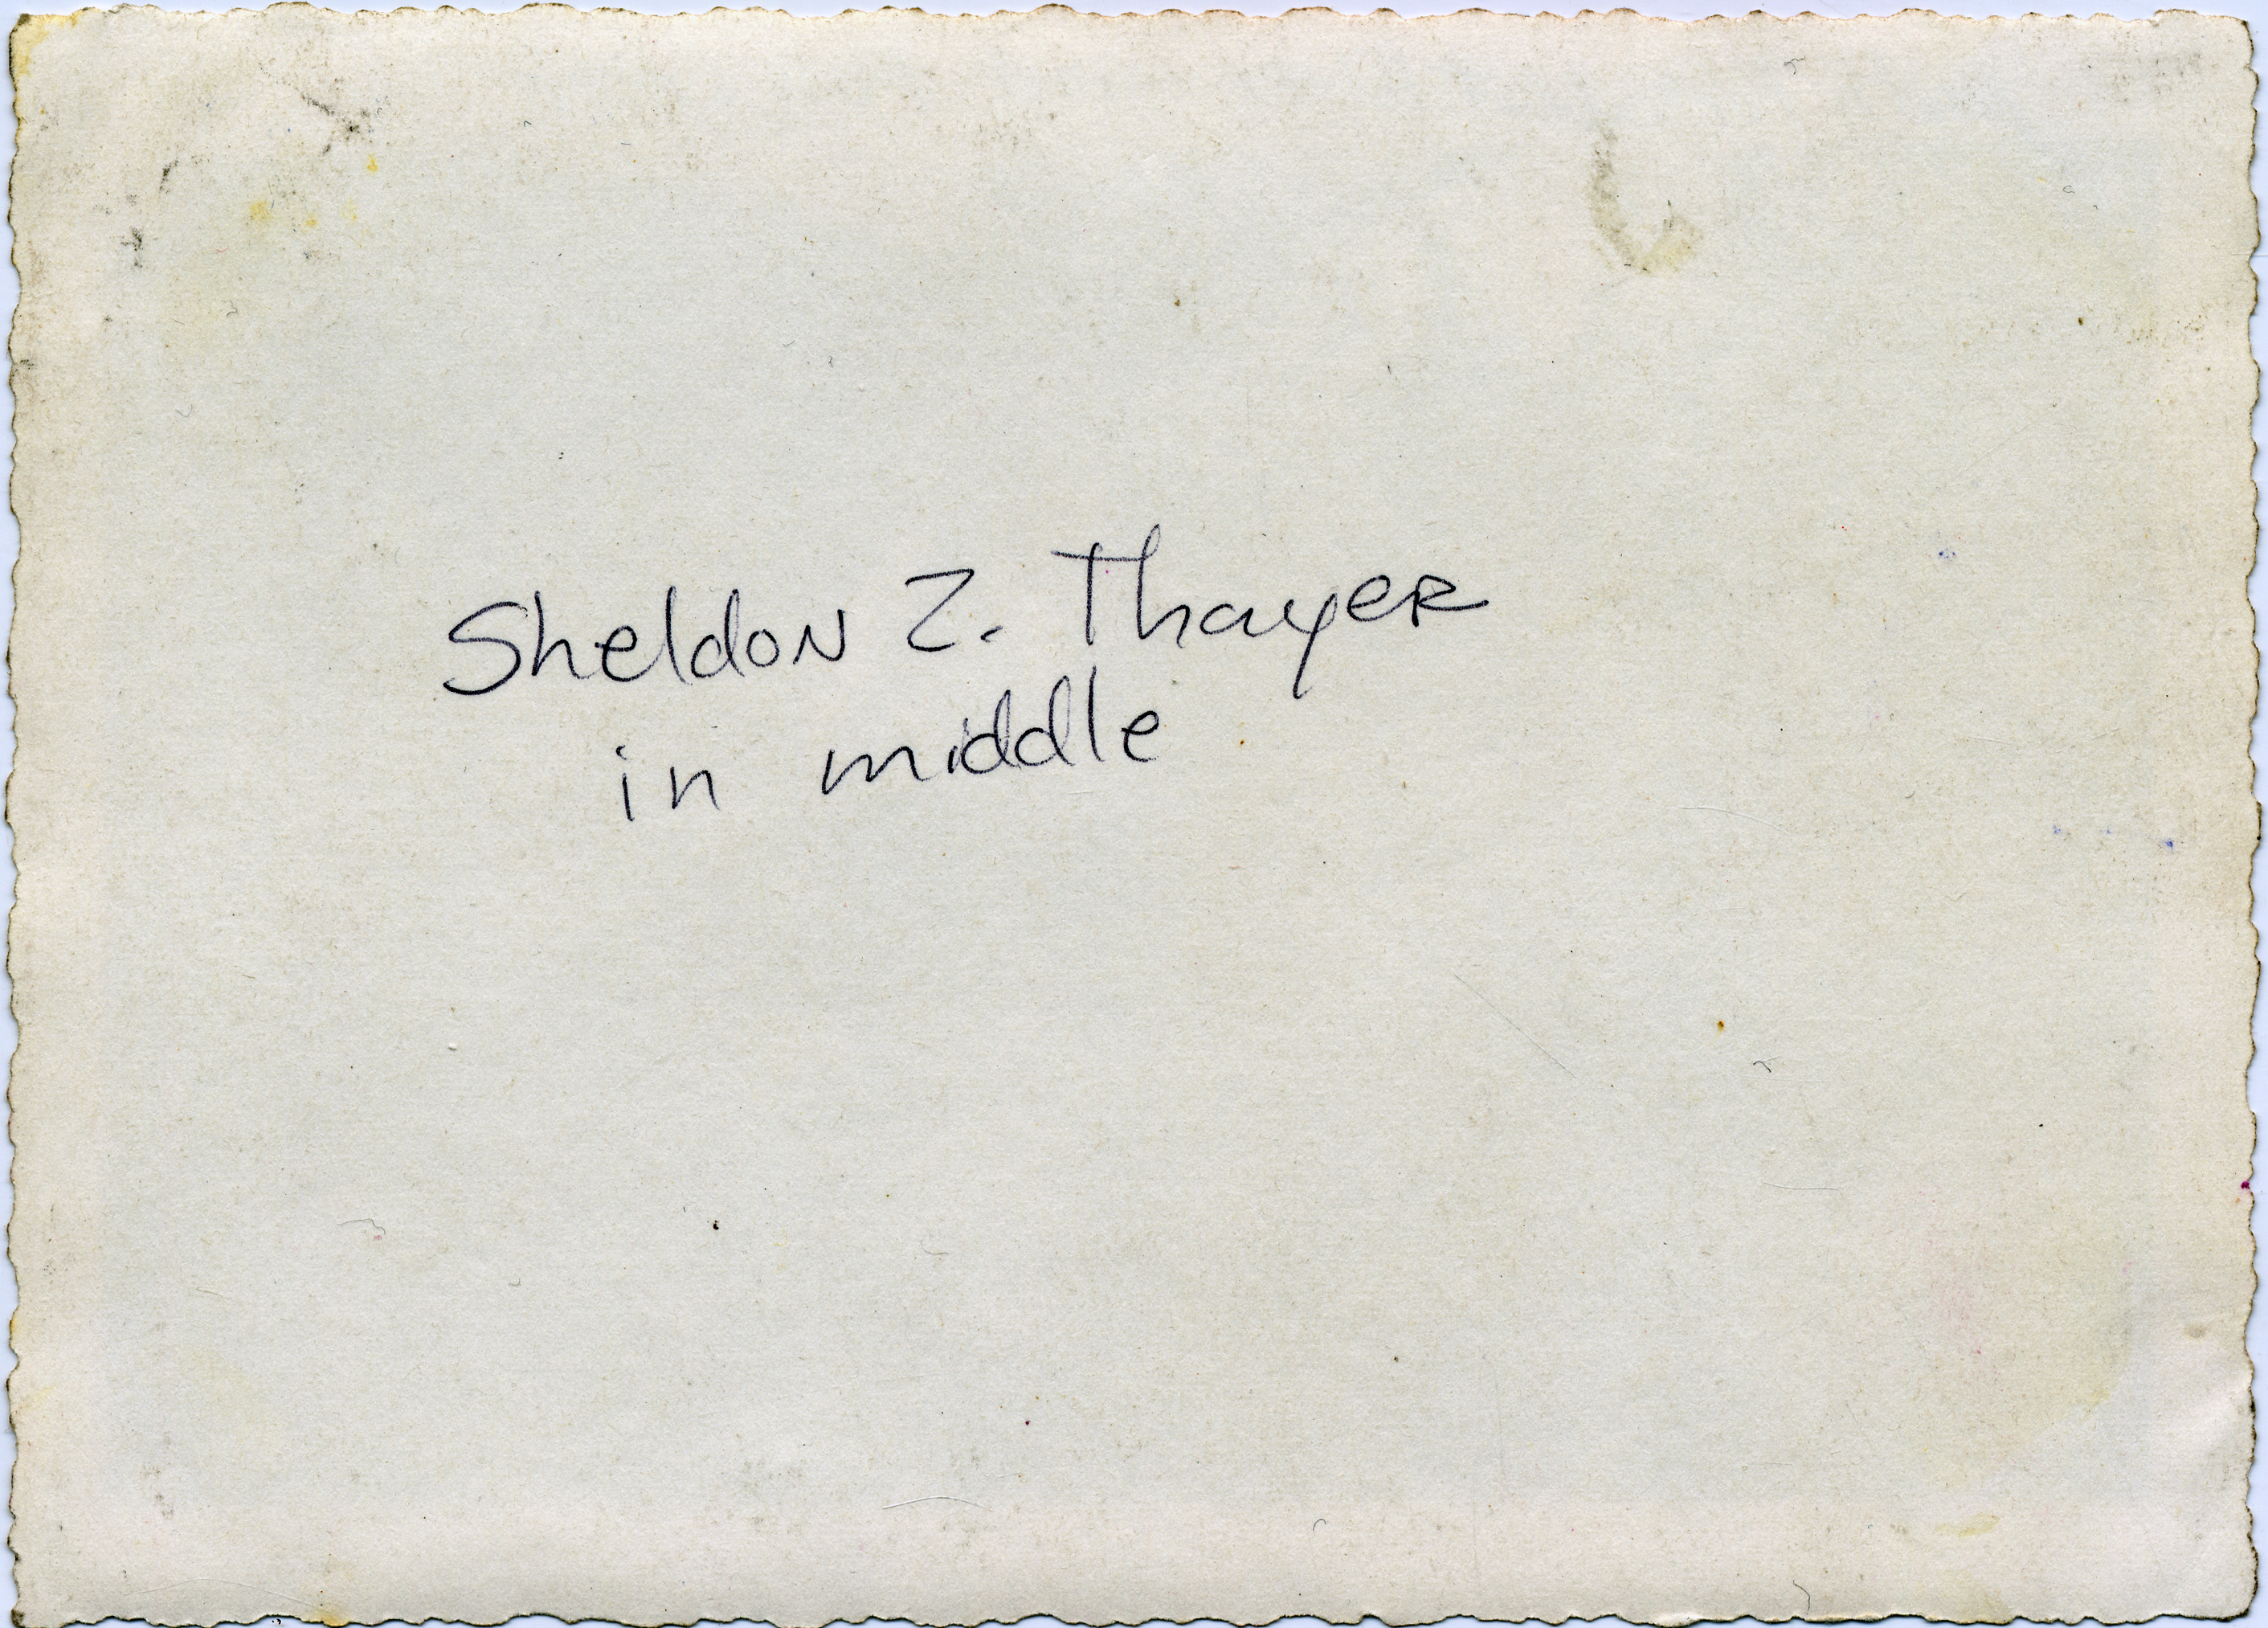 Sheldon Z. Thayer
in middle